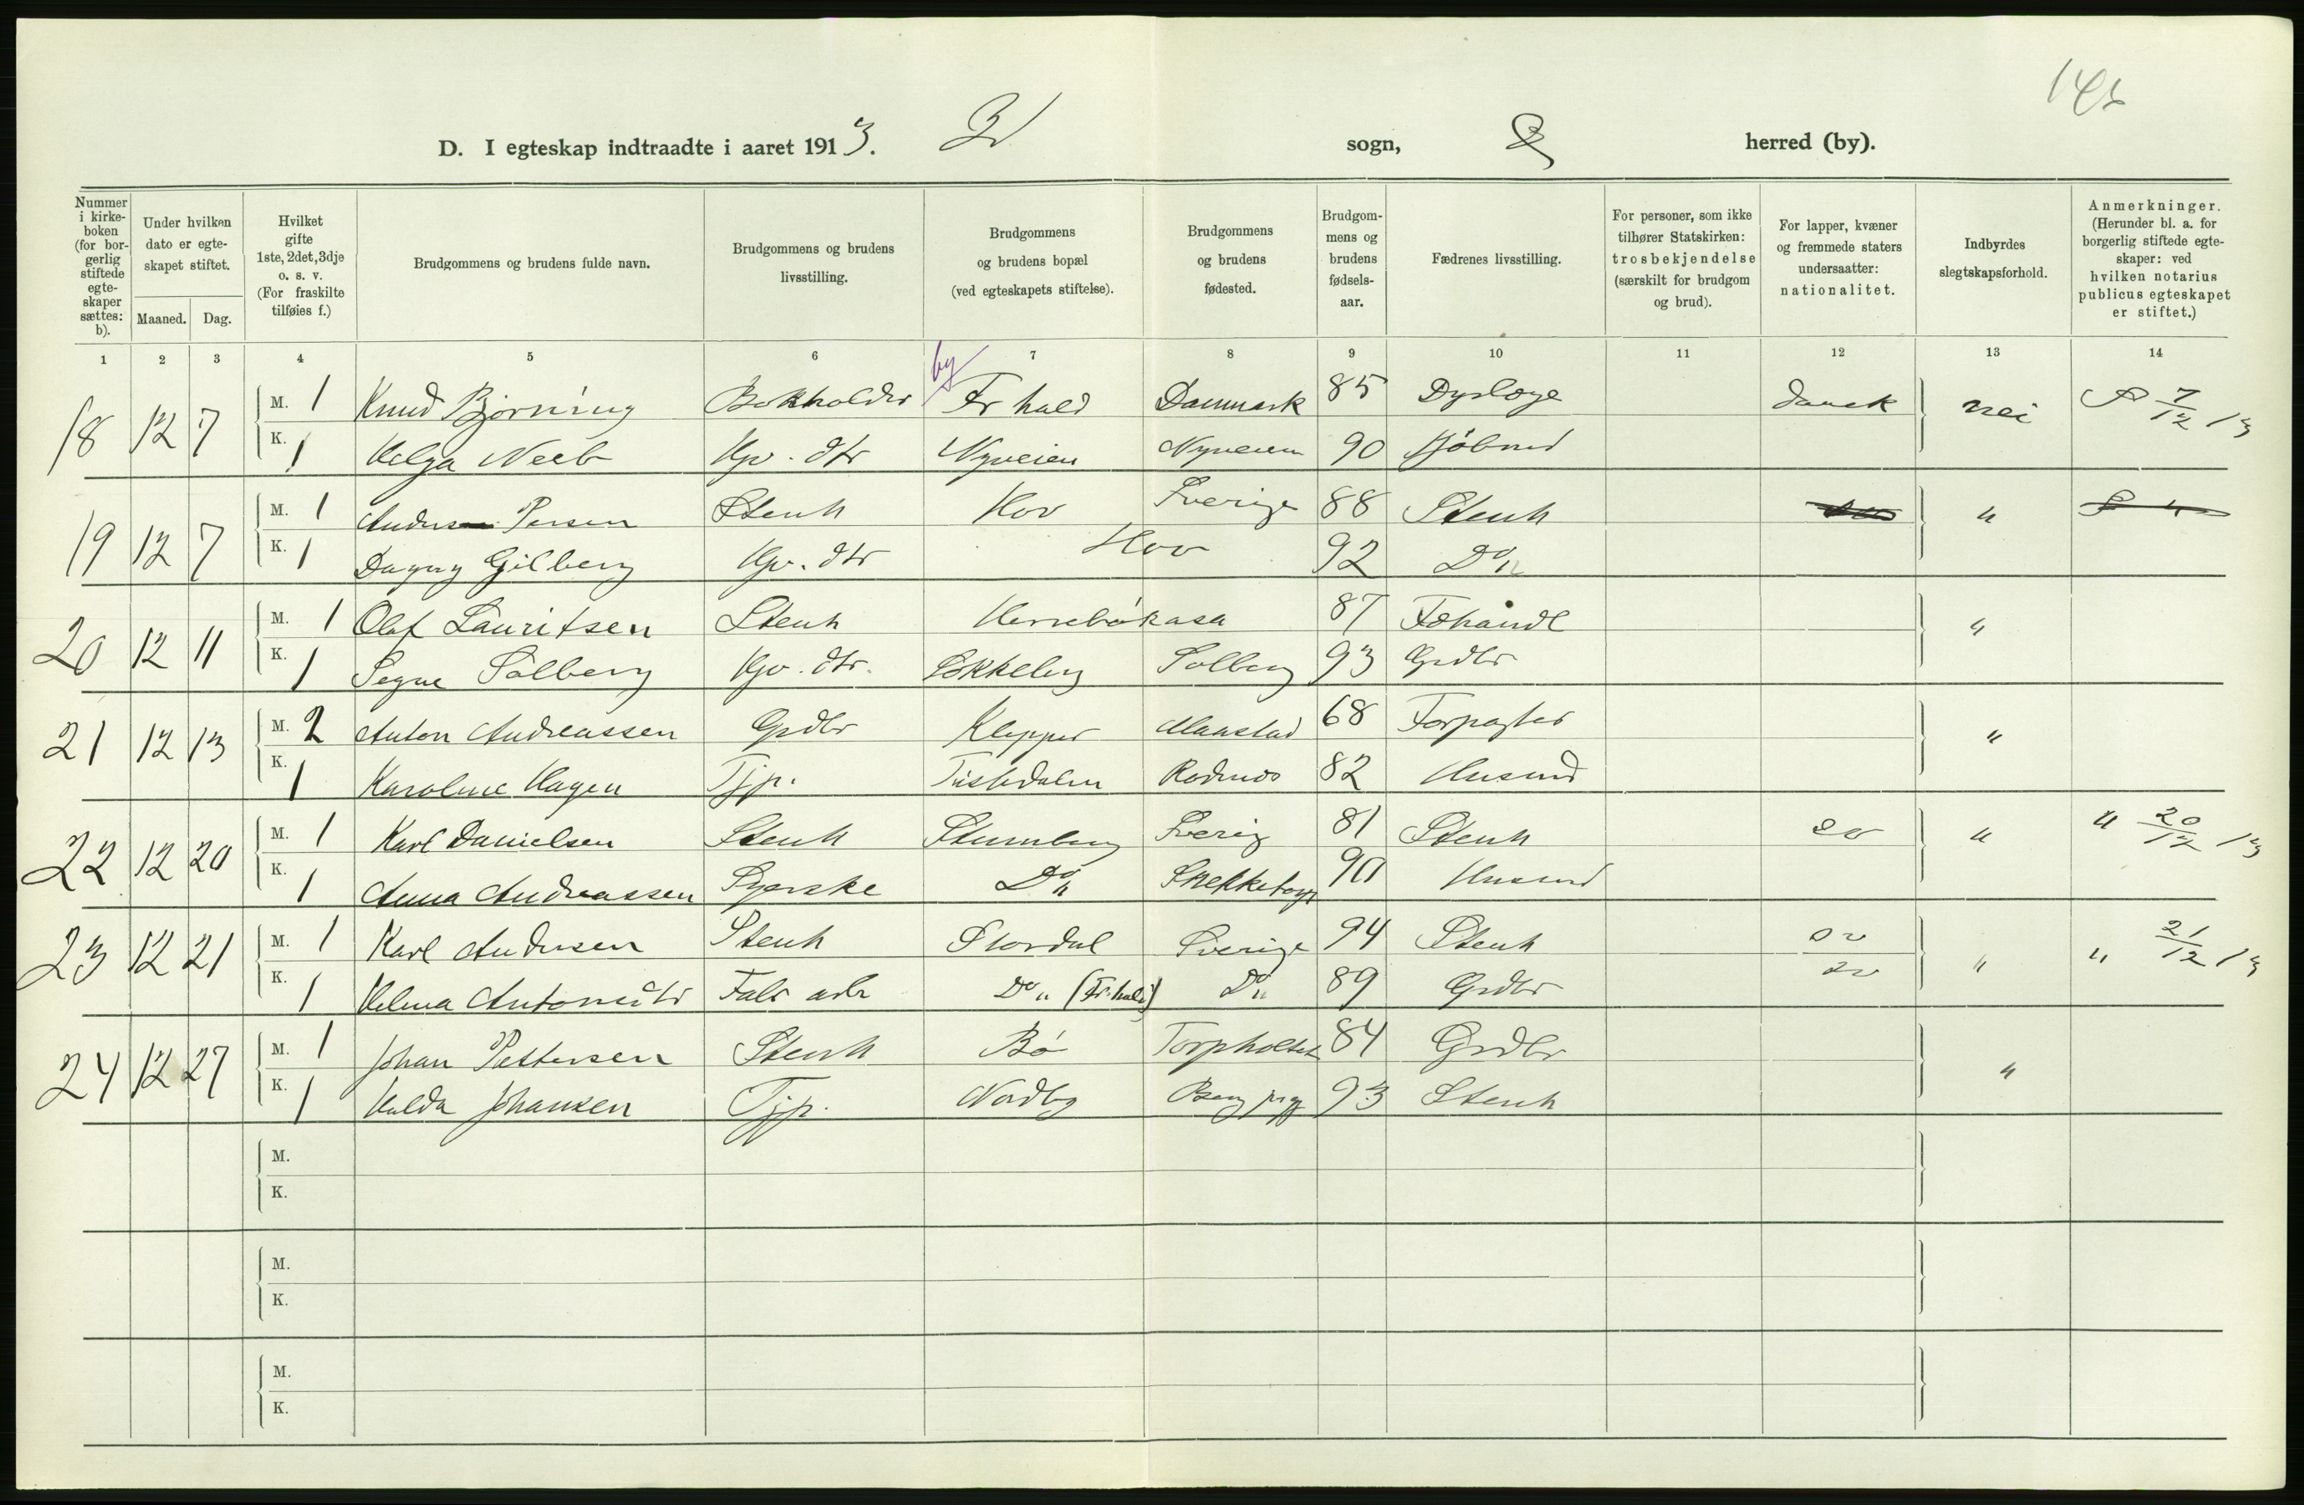 D. I egteskap indtraadte i aaret 1913. sogn, herred (by).
Nummer i kirkeboken (for borgerlig stiftede egteskaper sættes: b).
Under hvilken dato er egteskapet stiftet.
Maaned. Dag.
Hvilket gifte 1ste, 2det, 3dje o. s. v. (For fraskilte tilføies f.)
Brudgommens og brudens fulde navn.
Brudgommens og brudens livsstilling.
Brudgommens og brudens bopæl (ved egteskapets stiftelse).
Brudgommens og brudens fødested.
Brudgommens og brudens fødselsaar.
Fædrenes livsstilling.
For personer, som ikke tilhører Statskirken: trosbekjendelse (særskilt for brudgom og brud).
For lapper, kvæner og fremmede staters undersaatter: nationalitet.
Indbyrdes slegtskapsforhold.
Anmerkninger. (Herunder bl. a. for borgerlig stiftede egteskaper: ved hvilken notarius publicus egteskapet er stiftet.)
1 2 3 4 5 6 7 8 9 10 11 12 13 14
by
18 12 7 M. 1 Knud Bjørning Bokholder Fr hald Danmark 85 Dyrlæge dansk nei 7/12 13
K. 1 Helga Neeb Hjv. dtr Nyveien Nyveien 90 Kjøbmd
19 12 7 M. 1 Anders Persen Stenh Hov Sverige 88 Stenh "
K. 1 Dagny Gilberg Hjv. dtr Hov 92 Do "
20 12 11 M. 1 Olaf Lauritsen Stenh Herrebøkasa 87 Fehandl "
K. 1 Signe Solberg Hjv. dtr. Sokkelug Solberg 93 Grdbr
21 12 13 M. 2 Anton Andreassen Grdbr Klepper 68 Forpagter "
K. 1 Karoline Hagen Tjp. Tistedalen Rødenes 82 Husmd
22 12 20 M. 1 Karl Danielsen Stenh Stumberg Sverig 81 Stenh sv " " 20/12 13
K. 1 Anna Andreassen Syerske Do " Snekketorp 90 Husmd
23 12 21 M. 1 Karl Andersen Stenh Stordal Sverige 94 Stenh sv " " 21/12 13
K. 1 Helma Antonsdtr Fabr arb Do " (Fr. hald) Do " 89 Grdbr sv
24 12 27 M. 1 Johan Pettersen Stenh Bø Torpholtet 84 Grdbr "
K. 1 Hulda Johansen Tjp. Nordby 93 Stenh
M.
K.
M.
K.
M.
K.